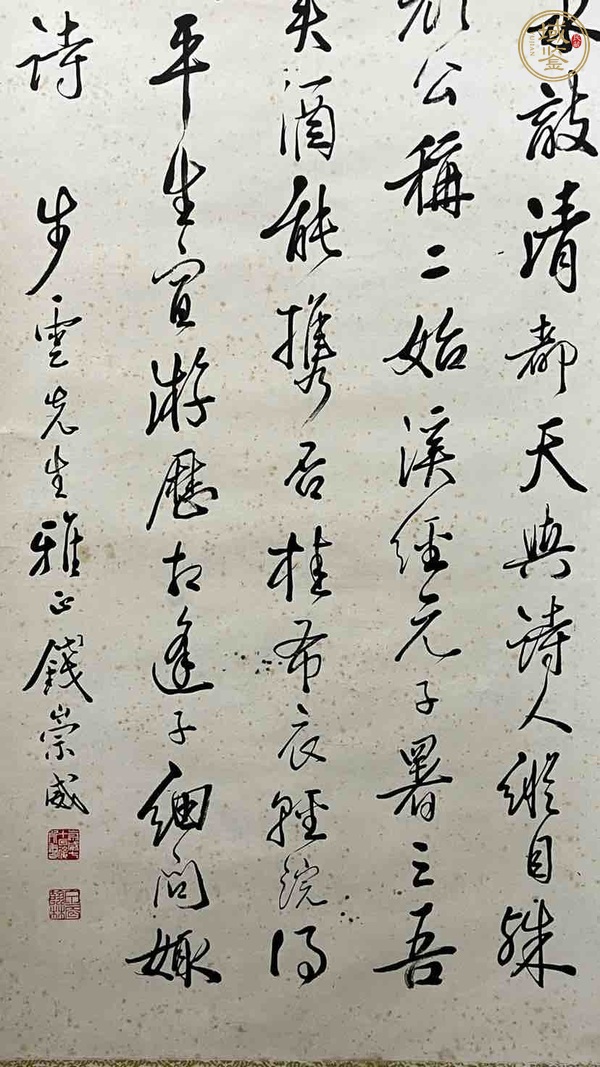 敲清都天與詩人縱目殊
公稱二始溪經元子署三吾
酒能攜否桂布衣輕浣得
平生宦游歷相逢子細問娵
詩 步雲先生雅正錢崇威